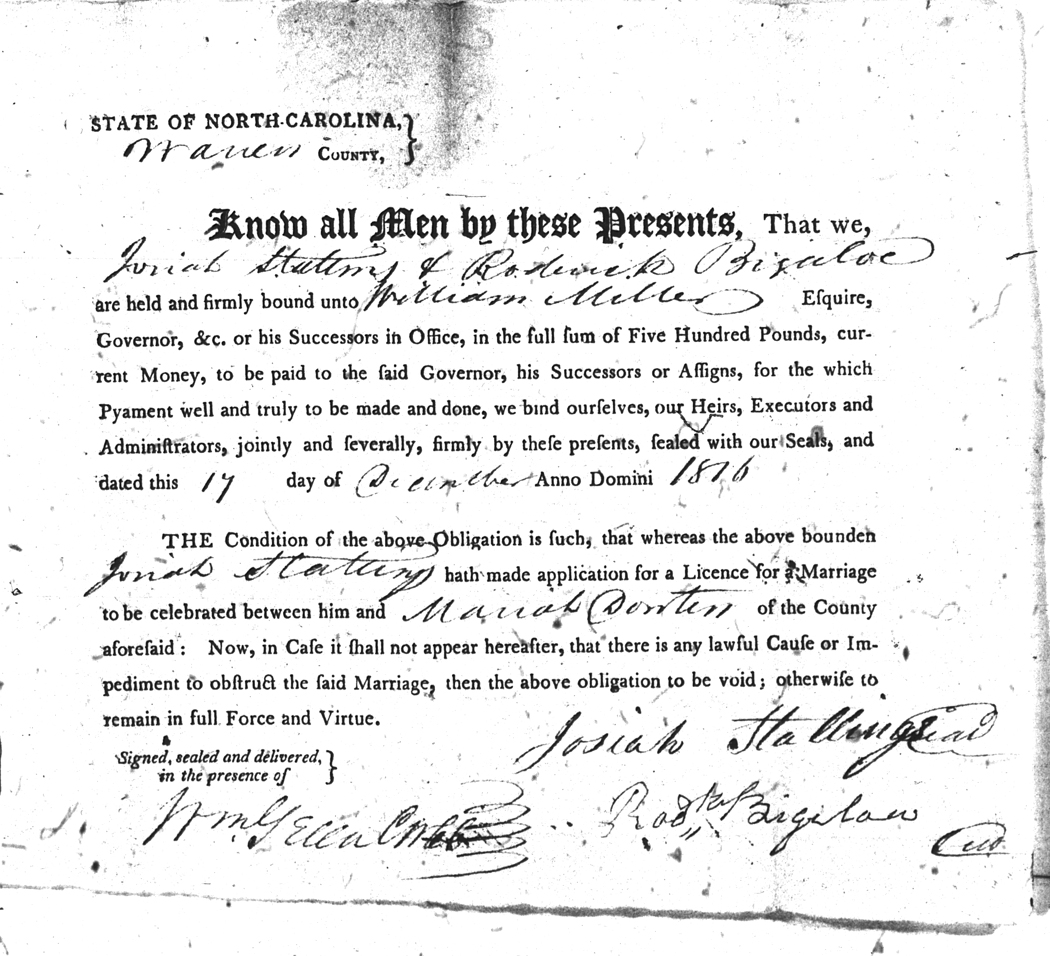 STATE OF NORTH-CAROLINA,
Warren COUNTY,
Know all Men by these Presents, That we,
Josiah & Roderick Bigaloe
are held and firmly bound unto William Miller Eſquire,
Governor, &c. or his Successors in Office, in the full ſum of Five Hundred Pounds, cur-
rent Money, to be paid to the ſaid Governor, his Successors or Aſſigns, for the which
Pyament well and truly to be made and done, we bind ourſelves, our Heirs, Executors and
Adminiſtrators, jointly and ſeverally, firmly by theſe preſents, ſealed with our Seals, and
dated this 17 day of December Anno Domini 1816
THE Condition of the above Obligation is ſuch, that whereas the above bounden
Josiah hath made application for a Licence for a Marriage
to be celebrated between him and Mariah of the County
aforeſaid: Now, in Caſe it ſhall not appear hereafter, that there is any lawful Cauſe or Im-
pediment to obſtruct the ſaid Marriage, then the above obligation to be void; otherwiſe to
remain in full Force and Virtue.
Josiah Stallings Seal
Signed, sealed and delivered,
in the presence of
Wm Bigelow Seal